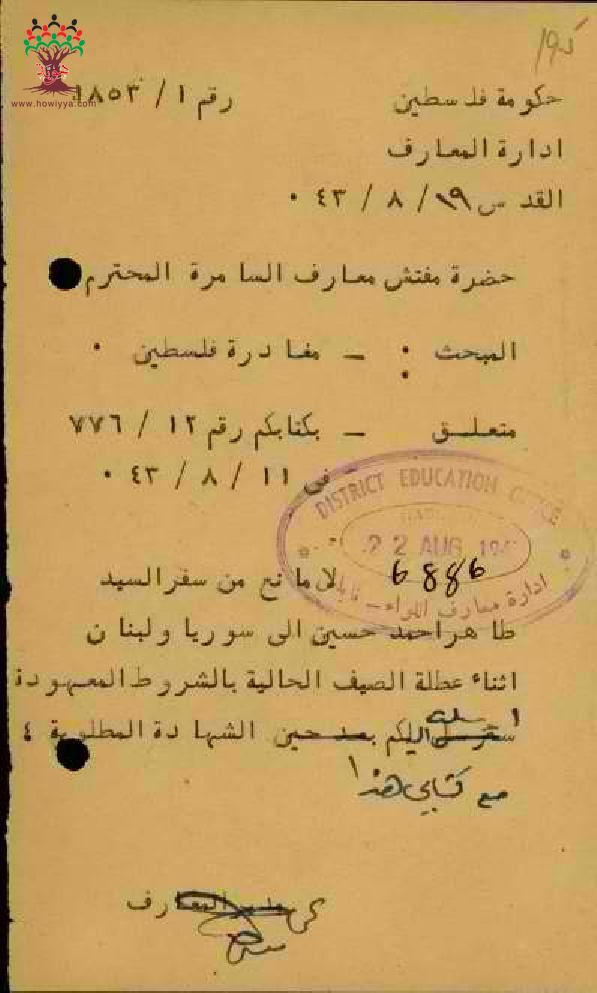 www.howiyya.com
حكومة فلسطين
رقم ١ / ١٨٥٣
ادارة المعارف
القدس ١٩ / ٨ / ٤٣ ٠
حضرة مفتش معارف السامرة المحترم
المبحث : ـ مغادرة فلسطين ٠
متعلق ـ بكتابكم رقم ١٢ / ٧٧٦
في ١١ / ٨ / ٤٣ ٠
DISTRICT EDUCATION OFFICE
22 AUG 194
6886
ادارة معارف اللواء ـ نابلس
لا مانع من سفر السيد
طاهر احمد حسين الى سوريا ولبنان
اثناء عطلة الصيف الحالية بالشروط المعهودة
اليكم بعد حين الشهادة المطلوبة ٤
مع كتابي هذا
المعارف